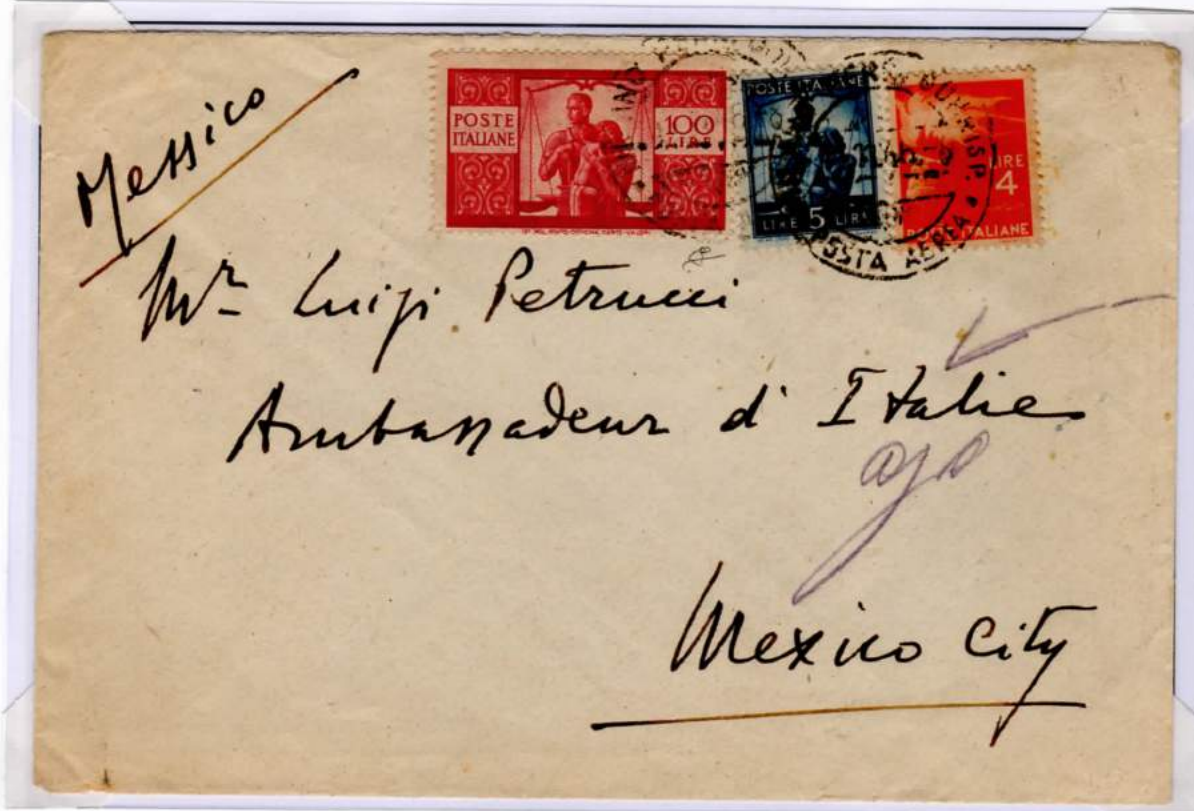 Messico
POSTE
ITALIANE
100
LIRE
POSTE ITALIANE
LIRE 5 LIRE
LIRE
4
POSTE ITALIANE
POSTA AEREA
Mr Luigi Petrucci
Ambassadeur d'Italie
Mexico City